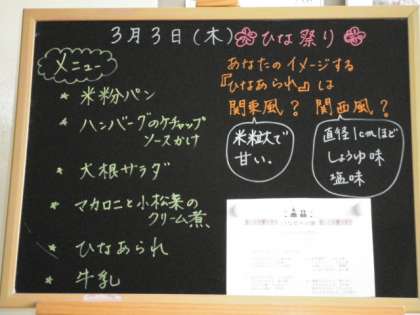 3月3日(木) ひな祭り
メニュー
米粉パン
ハンバーグのケチャップ
ソースかけ
大根サラダ
マカロニと小松菜の
クリーム煮
ひなあられ
牛乳
あなたのイメージする
『ひなあられ』は
関東風? 関西風?
米粒大で
甘い.
直径1cmほど
しょうゆ味
塩味